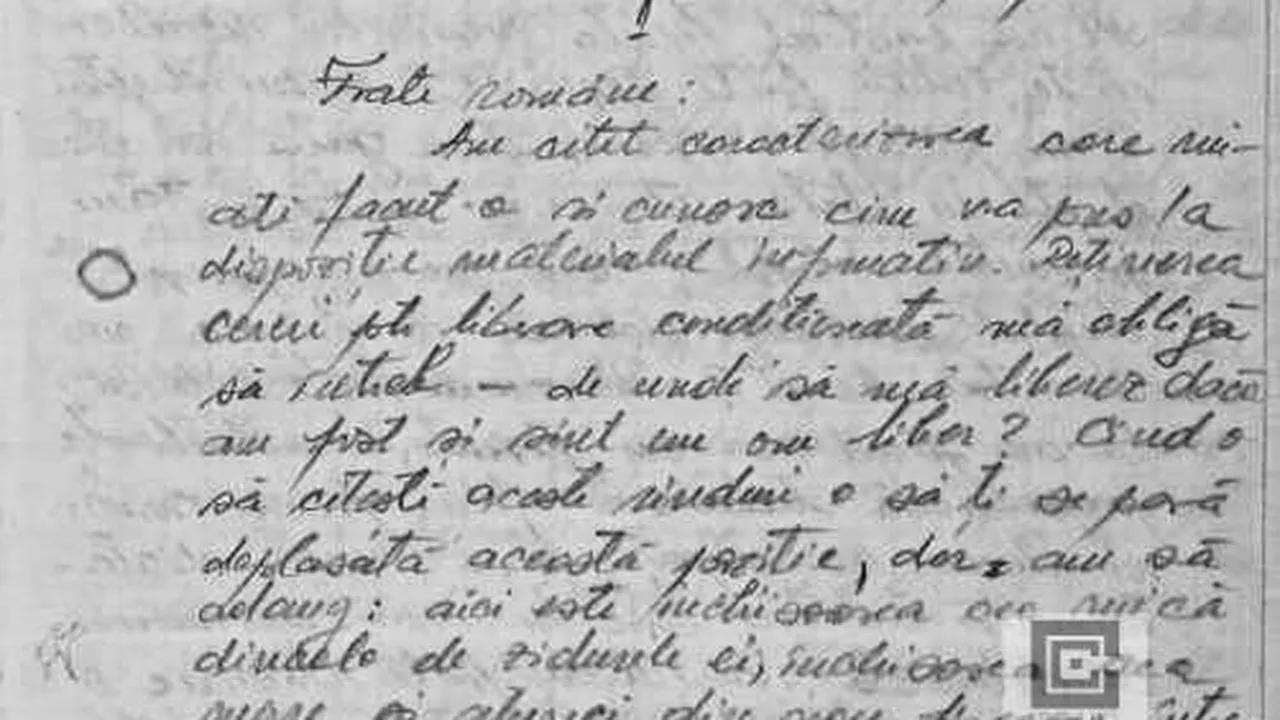 I
Frate române:
Am citit caracterizarea care mi-
ati facut-o si cunosc cine v-a pus la
dispozitie materialul informativ. Retinerea
cererii ptr liberare conditionată mă obligă
să întreb — de unde să mă liberez dacă
am fost si sint un om liber? Cind o
să citesti aceste rinduri o să ti se pară
deplasată această pozitie, dar, am să
adaug: aici este inchisoarea cea mică
dincolo de zidurile ei, inchisoarea cea
mare si atunci din nou